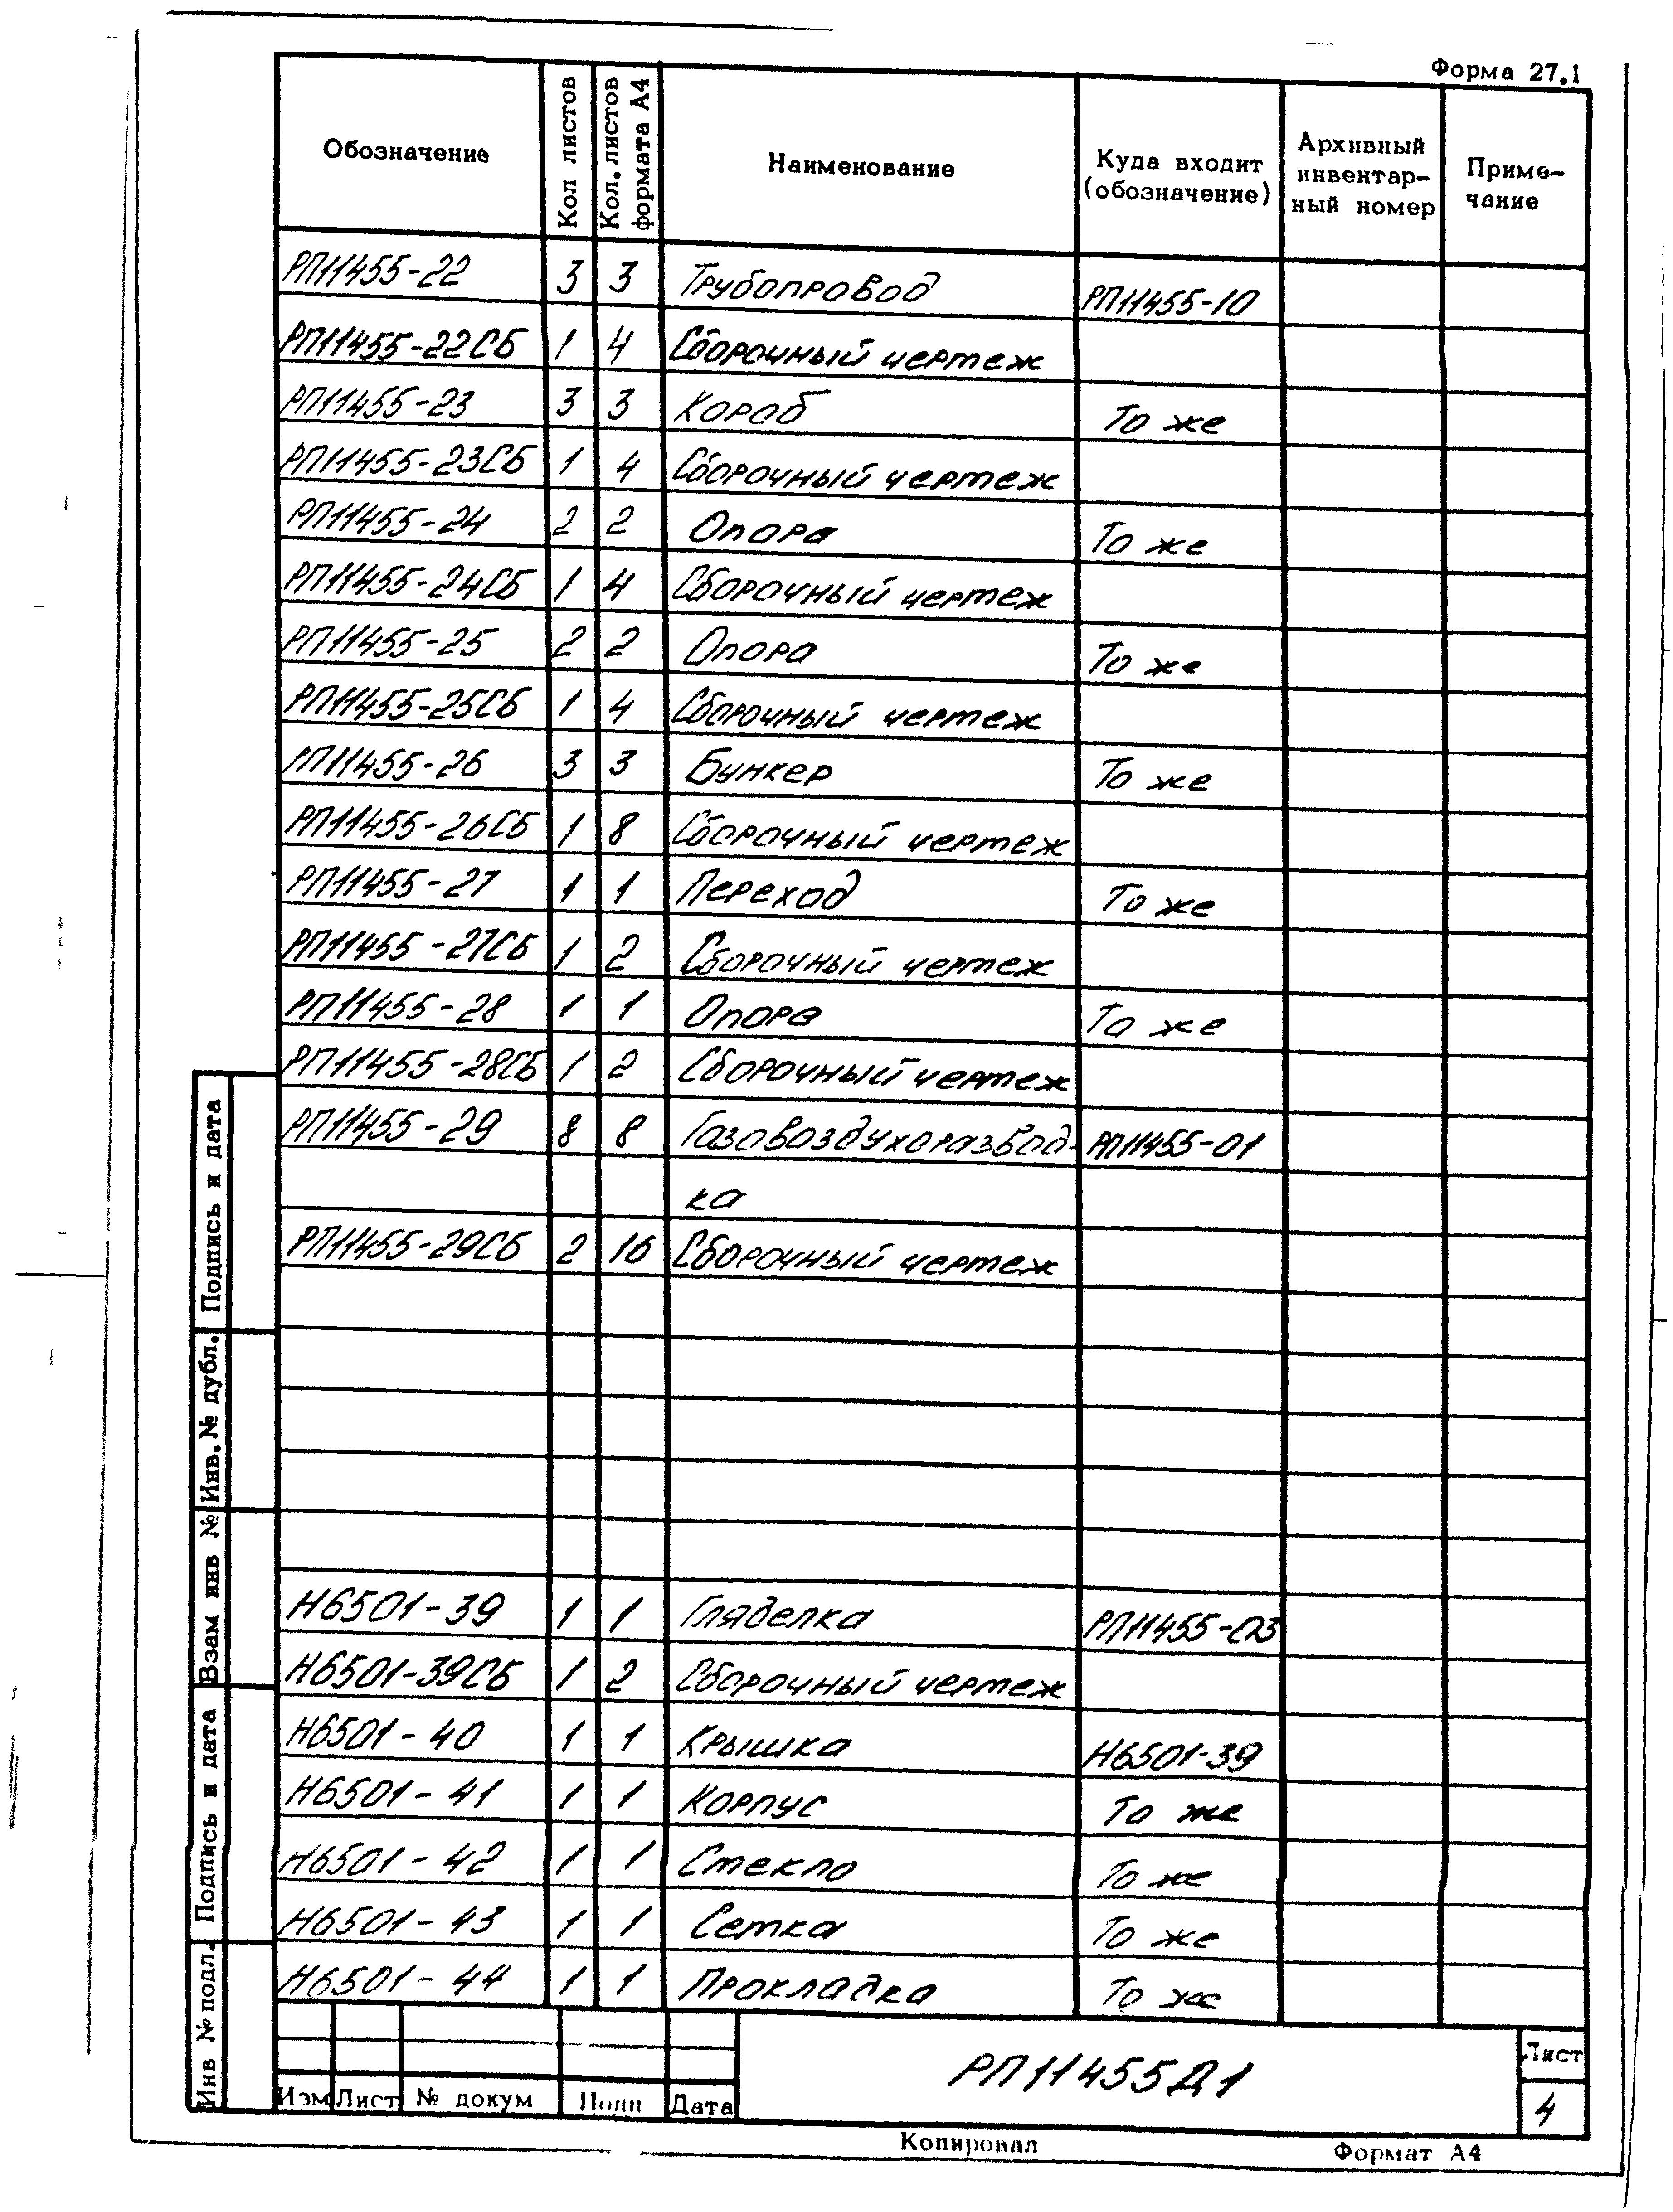 Форма 27.1
Обозначение | Кол листов | Кол. листов формата А4 | Наименование | Куда входит (обозначение) | Архивный инвентар-ный номер | Приме-чание
РП11455-22 3 3 Трубопровод РП11455-10
РП11455-22СБ 1 4 Сборочный чертеж
РП11455-23 3 3 Короб То же
РП11455-23СБ 1 4 Сборочный чертеж
РП11455-24 2 2 Опора То же
РП11455-24СБ 1 4 Сборочный чертеж
РП11455-25 2 2 Опора То же
РП11455-25СБ 1 4 Сборочный чертеж
РП11455-26 3 3 Бункер То же
РП11455-26СБ 1 8 Сборочный чертеж
РП11455-27 1 1 Переход То же
РП11455-27СБ 1 2 Сборочный чертеж
РП11455-28 1 1 Опора То же
РП11455-28СБ 1 2 Сборочный чертеж
РП11455-29 8 8 Газовоздухоразвод- РП11455-01
ка
РП11455-29СБ 2 16 Сборочный чертеж
Н6501-39 1 1 Гляделка РП11455-03
Н6501-39СБ 1 2 Сборочный чертеж
Н6501-40 1 1 Крышка Н6501-39
Н6501-41 1 1 Корпус То же
Н6501-42 1 1 Стекло То же
Н6501-43 1 1 Сетка То же
Н6501-44 1 1 Прокладка То же
Подпись и дата
Инв. № дубл.
Взам инв №
Подпись и дата
Инв № подл.
Изм Лист № докум Подп Дата
РП11455Д1
Лист
4
Копировал
Формат А4